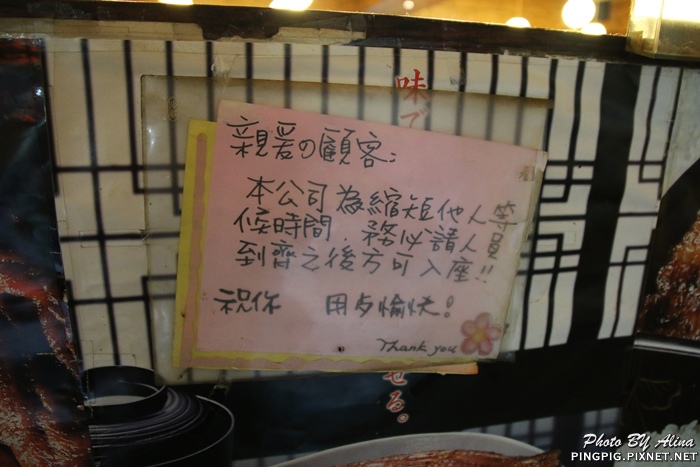 味で
親爱の顧客:
本公司為縮短他人等
候時間,務必請人員
到齊之後方可入座!!
祝你 用歺愉快!
Thank you
せる。
Photo BY Alina
PINGPIG.PIXNET.NET